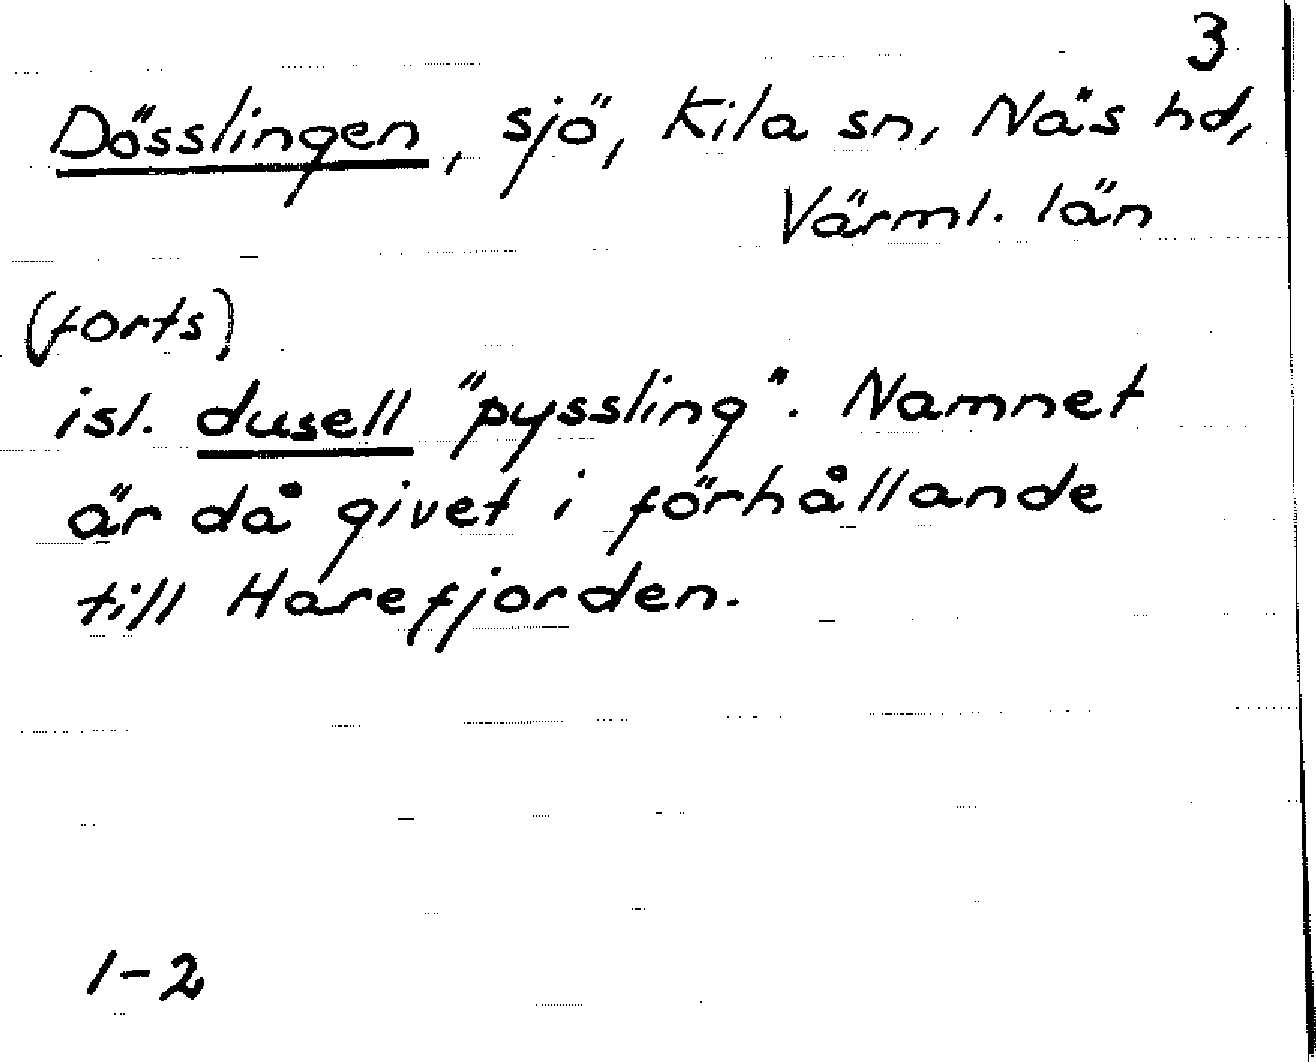 3
Dösslingen, sjö, Kila sn, Näs hd,
Värml. län
(forts)
isl. dusell "pyssling". Namnet
är då givet i förhållande
till Harefjorden.
1-2